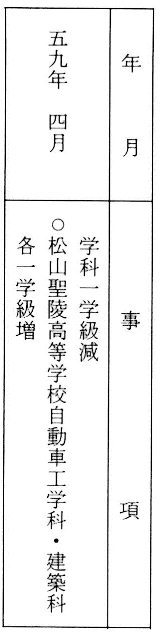 年　月
事　項
五九年　四月
学科一学級減
○松山聖陵高等学校自動車工学科・建築科
各一学級増